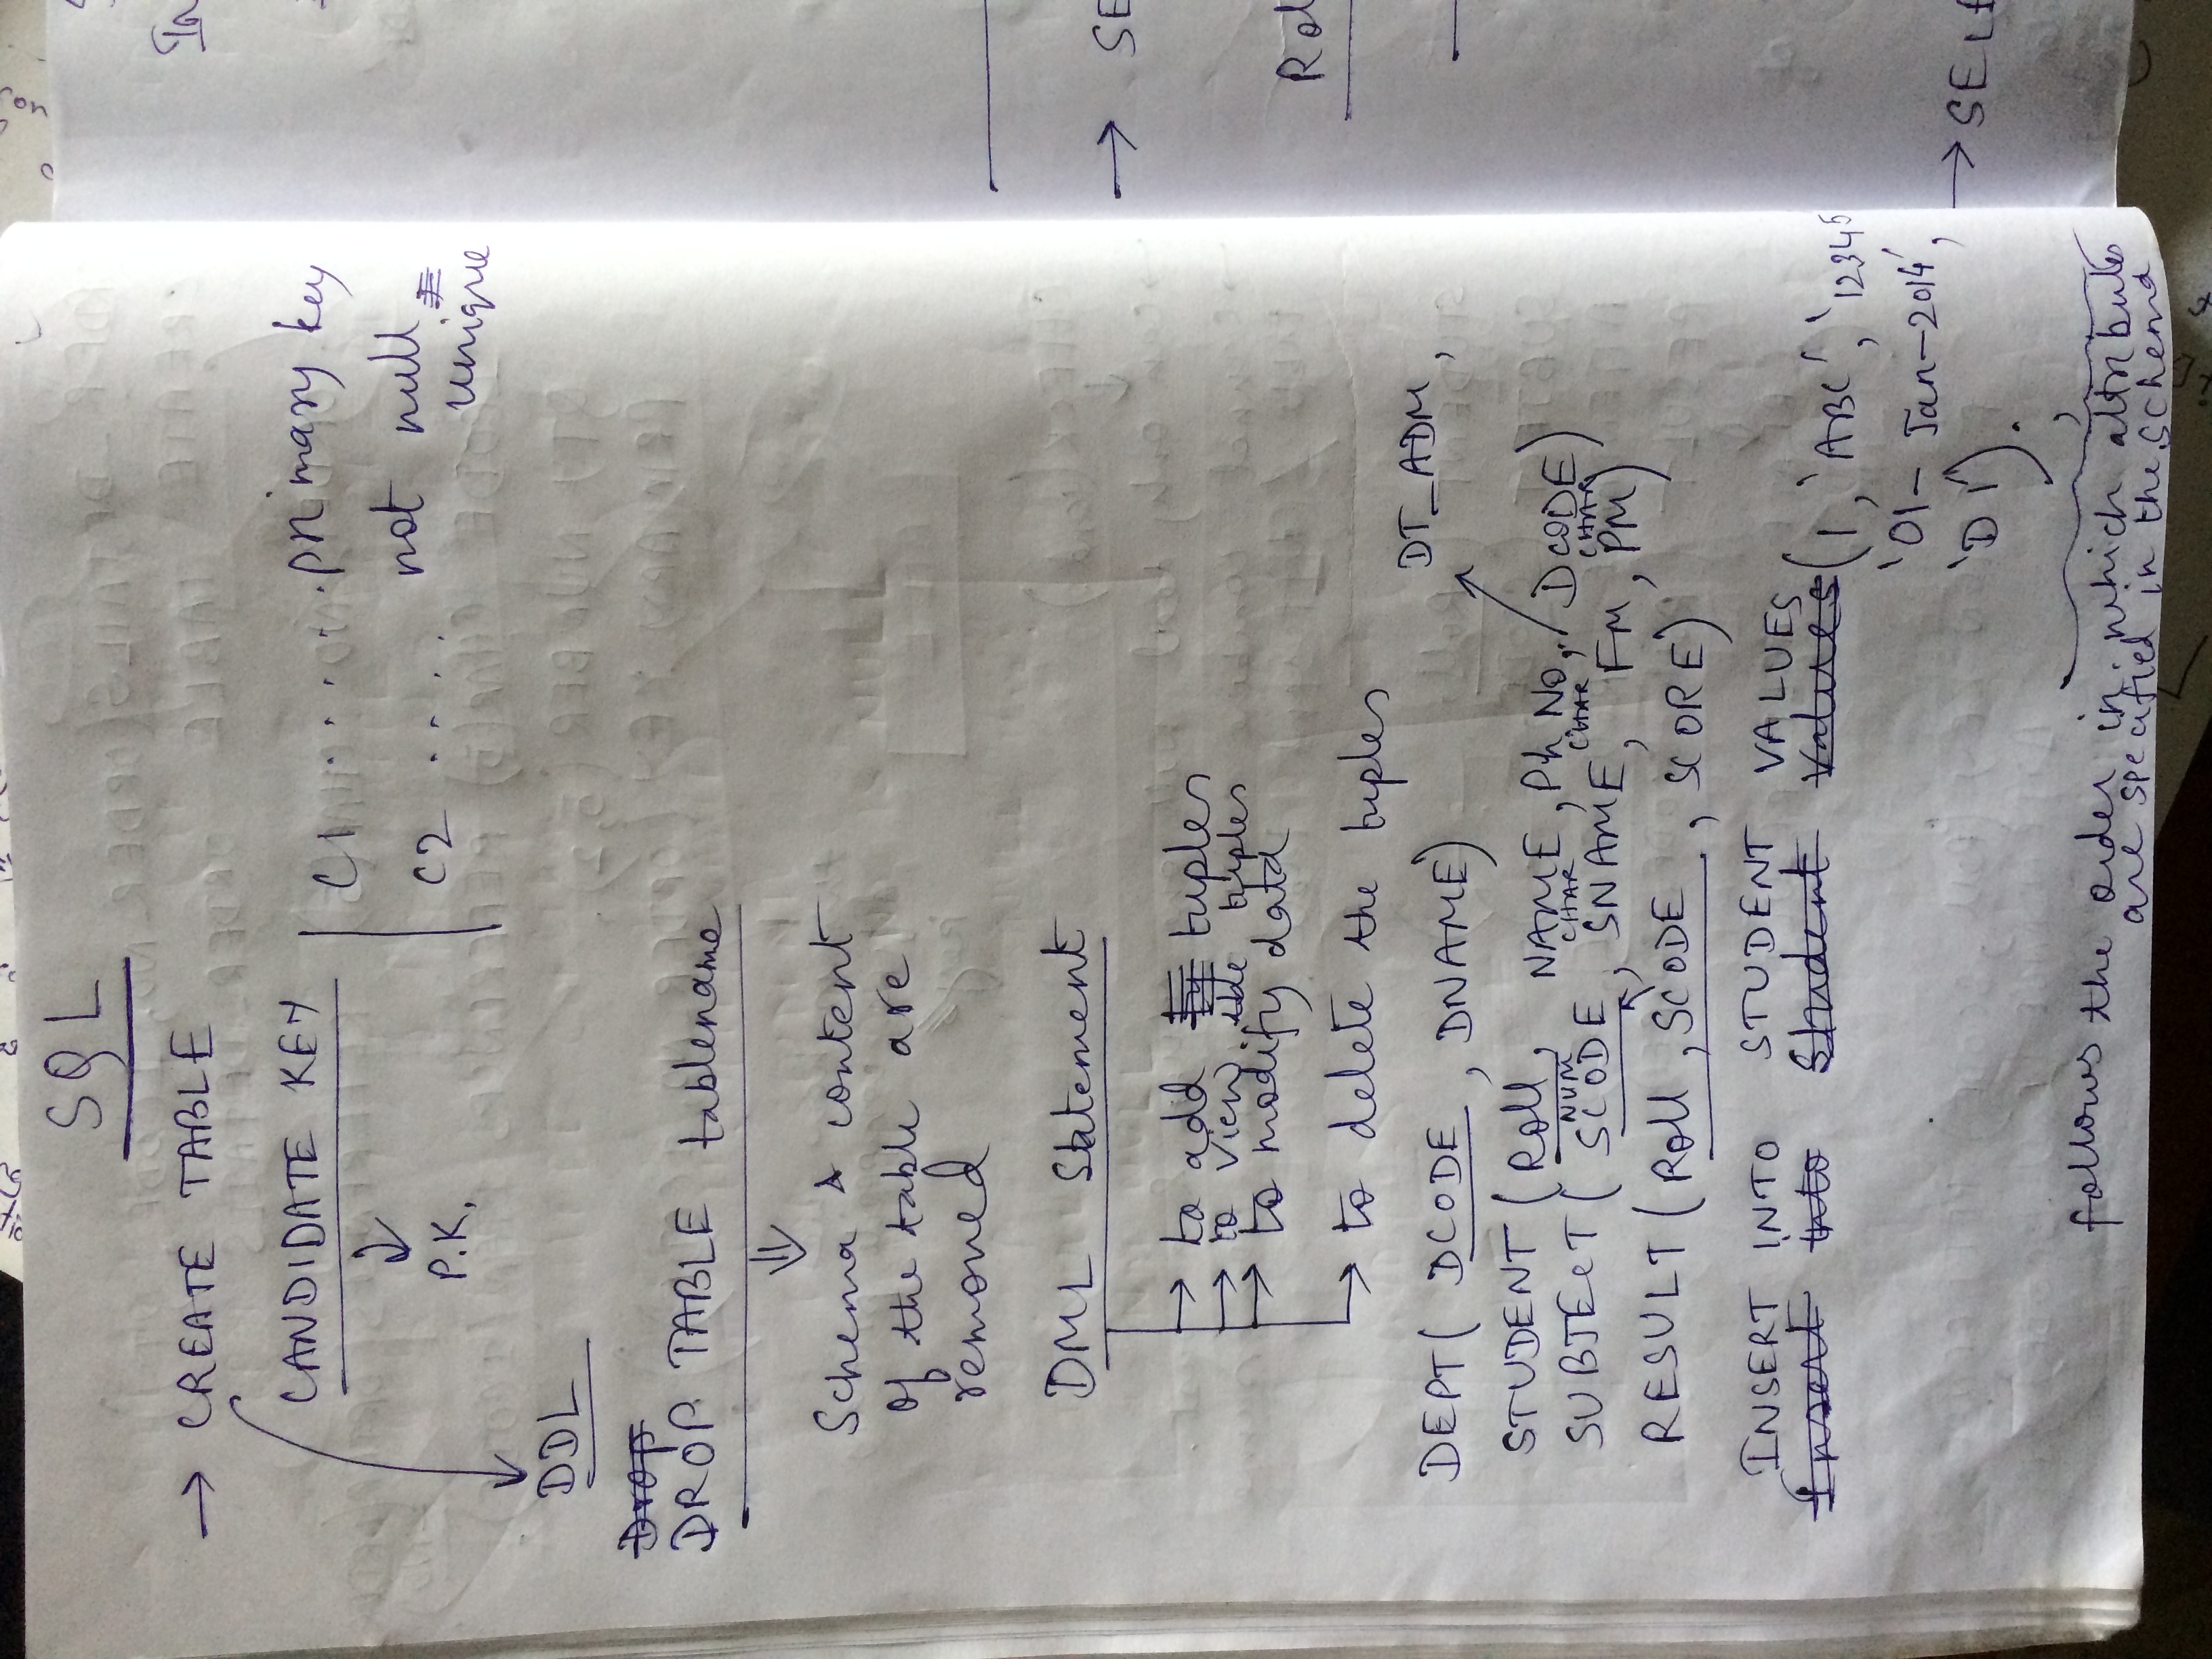 SQL
→ CREATE TABLE
CANDIDATE KEY
C1 ...... primary key
P.K.
C2 .... not null
unique
DDL
Drop
DROP TABLE tablename
Schema & content
of the table are
removed
DML Statement
→ to add tuples
→ to view the tuples
→ to modify data
→ to delete the tuples
DT_ADM,
DEPT( DCODE, DNAME)
STUDENT (Roll, NAME, Ph No, DCODE)
NUM CHAR CHAR CHAR
SUBJECT( SCODE, SNAME, FM, PM)
RESULT (Roll, SCODE, SCORE)
INSERT INTO STUDENT VALUES
Insert into Student Values (1, 'ABC', '12345
'01-Jan-2014',
'D1');
follows the order in which attributes
are specified in the schema
In
→ SE
Rol
→ SELE